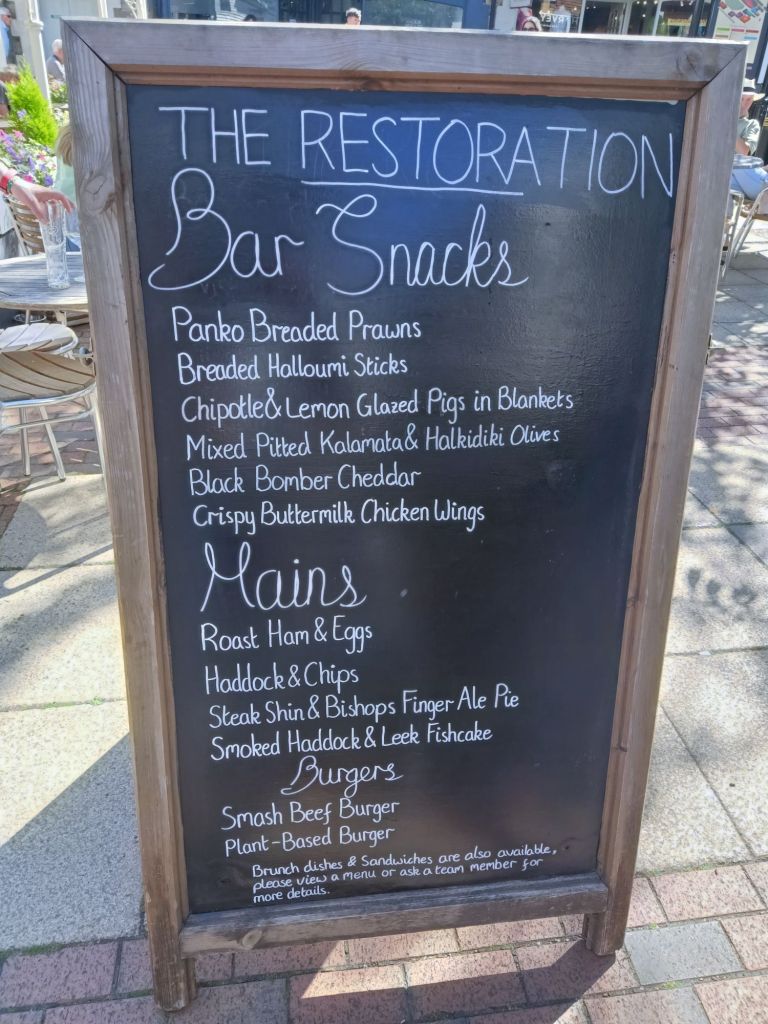 THE RESTORATION
Bar Snacks
Panko Breaded Prawns
Breaded Halloumi Sticks
Chipotle & Lemon Glazed Pigs in Blankets
Mixed Pitted Kalamata & Halkidiki Olives
Black Bomber Cheddar
Crispy Buttermilk Chicken Wings
Mains
Roast Ham & Eggs
Haddock & Chips
Steak Shin & Bishops Finger Ale Pie
Smoked Haddock & Leek Fishcake
Burgers
Smash Beef Burger
Plant-Based Burger
Brunch dishes & Sandwiches are also available,
please view a menu or ask a team member for
more details.